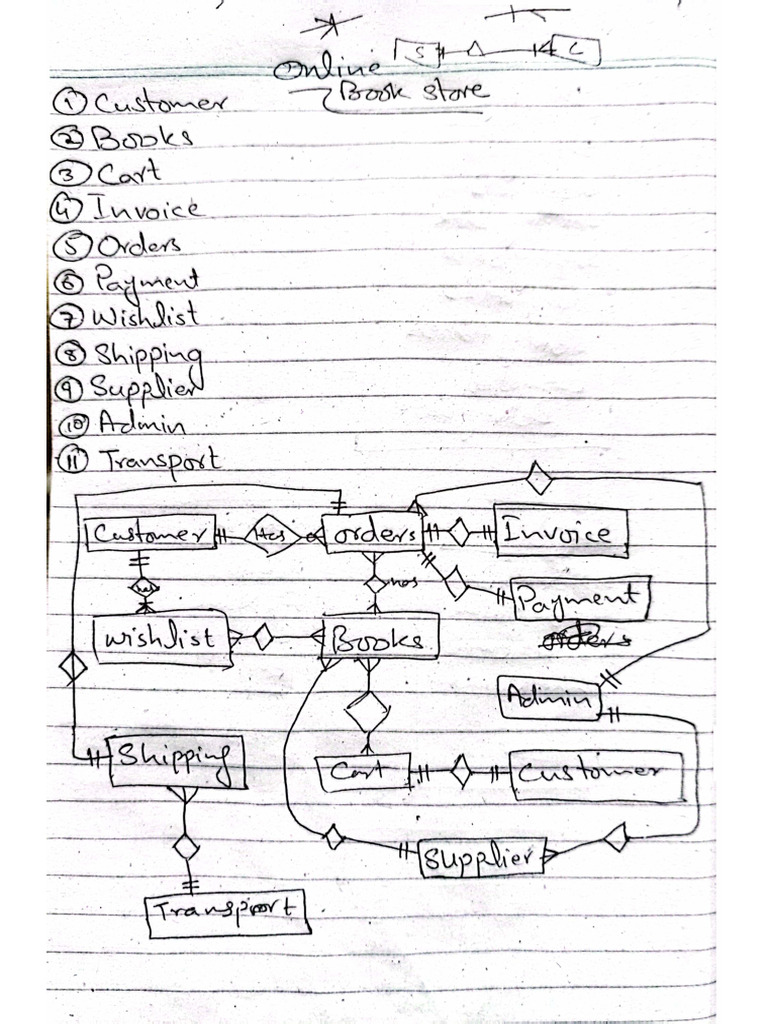 S C
Online
Book store
① Customer
② Books
③ Cart
④ Invoice
⑤ Orders
⑥ Payment
⑦ Wishlist
⑧ Shipping
⑨ Supplier
⑩ Admin
⑪ Transport
Customer Has orders Invoice
has has Payment
wishlist Books orders
Admin
Shipping Cart Customer
Supplier
Transport